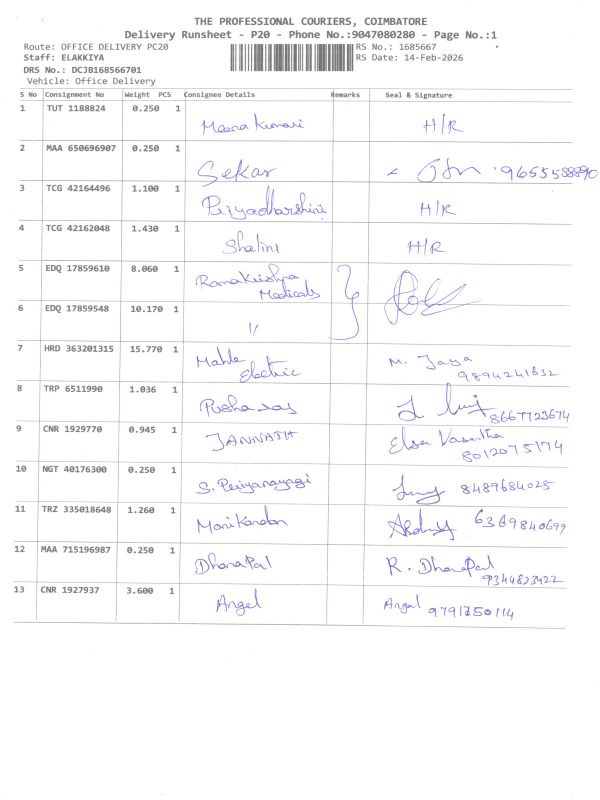 THE PROFESSIONAL COURIERS, COIMBATORE
Delivery Runsheet - P20 - Phone No.:9047080280 - Page No.:1
Route: OFFICE DELIVERY PC20
RS No.: 1685667
Staff: ELAKKIYA
RS Date: 14-Feb-2026
DRS No.: DCJB168566701
Vehicle: Office Delivery
S No Consignment No Weight PCS Consignee Details Remarks Seal & Signature
1 TUT 1188824 0.250 1 Meena Kumari H/R
2 MAA 650696907 0.250 1 Sekar
3 TCG 42164496 1.100 1 Priyadharshini H/R
4 TCG 42162048 1.430 1 Shalini H/R
5 EDQ 17859610 8.060 1 Ramakrishna
Medicals
6 EDQ 17859548 10.170 1 "
7 HRD 363201315 15.770 1 Mahle M. Jaya
Electric 9894241632
8 TRP 6511990 1.036 1 8667723674
9 CNR 1929770 0.945 1 JANNATH Elsa Vasantha
8012075174
10 NGT 40176300 0.250 1 S. Periyanayagi 8489684025
11 TRZ 335018648 1.260 1 Manikandan 6369840699
12 MAA 715196987 0.250 1 DhanaPal R. DhanaPal
9344823422
13 CNR 1927937 3.600 1 Angel Angel 9791750114